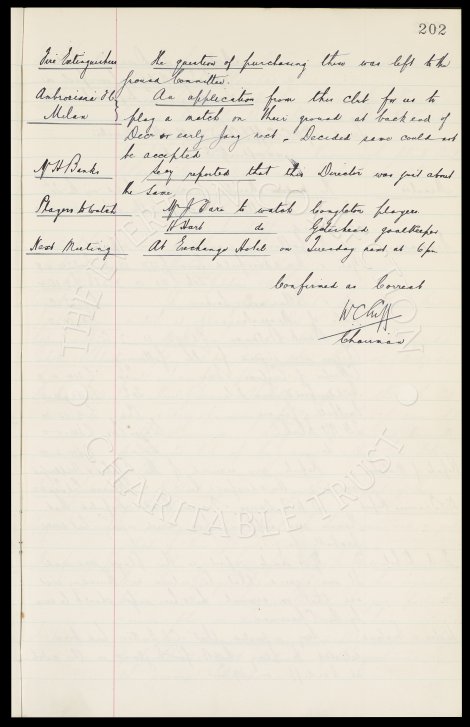 202
Fire Extinguishers The question of purchasing these was left to the
Ground Committee.
Ambrosiana F.C. An application from this club for us to
Milan play a match on their ground at back end of
Decr or early Jany next. Decided same could not
be accepted
Mr H Banks Secy reported that this Director was just about
the same
Players to watch Mr J Fare to watch Congleton players
W Hart do Gateshead goalkeeper
Next Meeting At Exchange Hotel on Tuesday next at 6pm
Confirmed as Correct
W C Cuff
Chairman
THE EVERTON
CHARITABLE TRUST